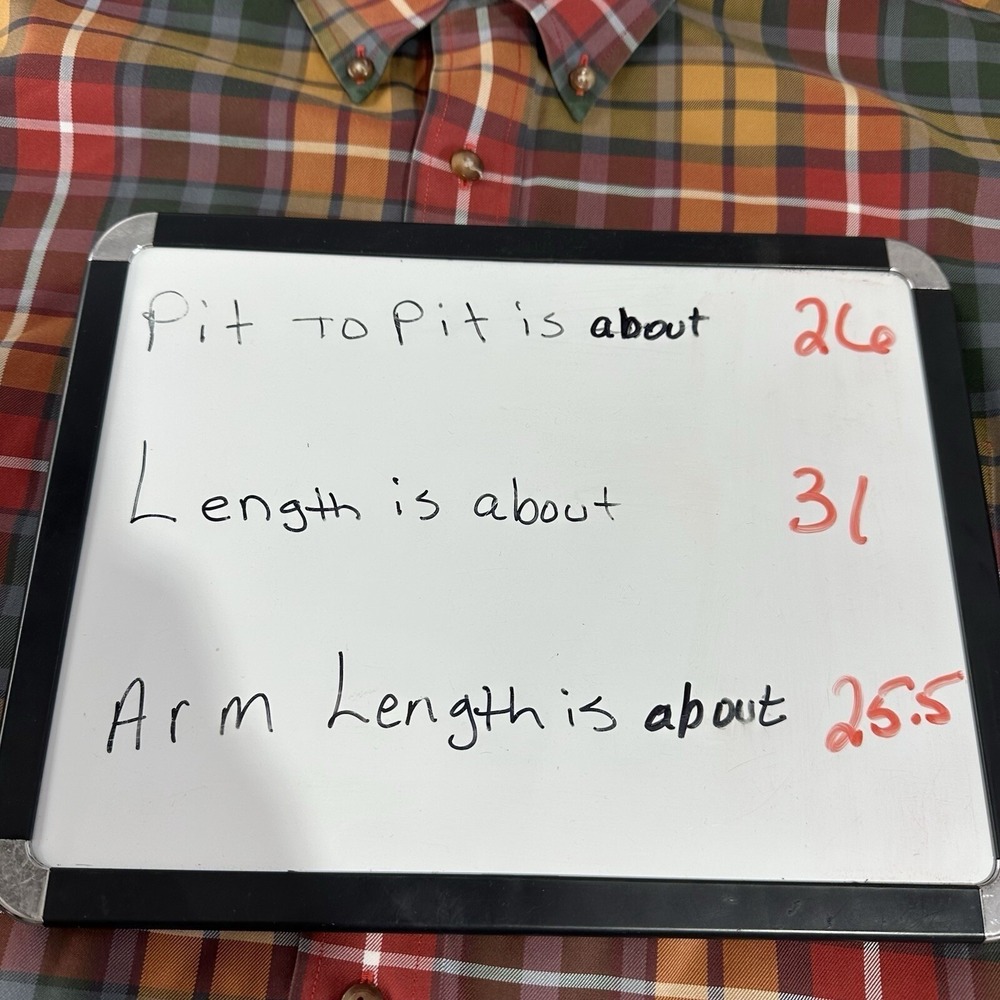 Pit To Pit is about 26
Length is about 31
Arm Length is about 25.5